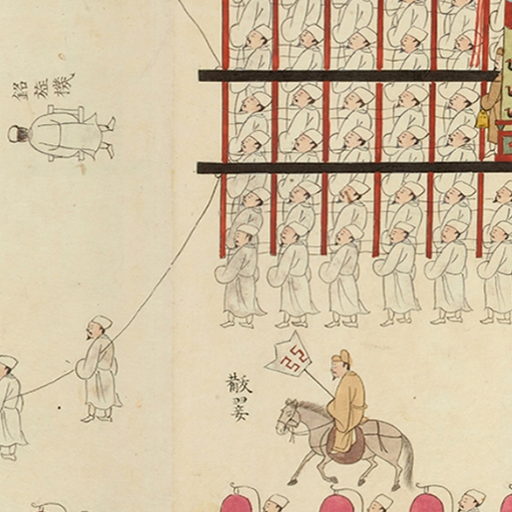 銘旌機
黻翣